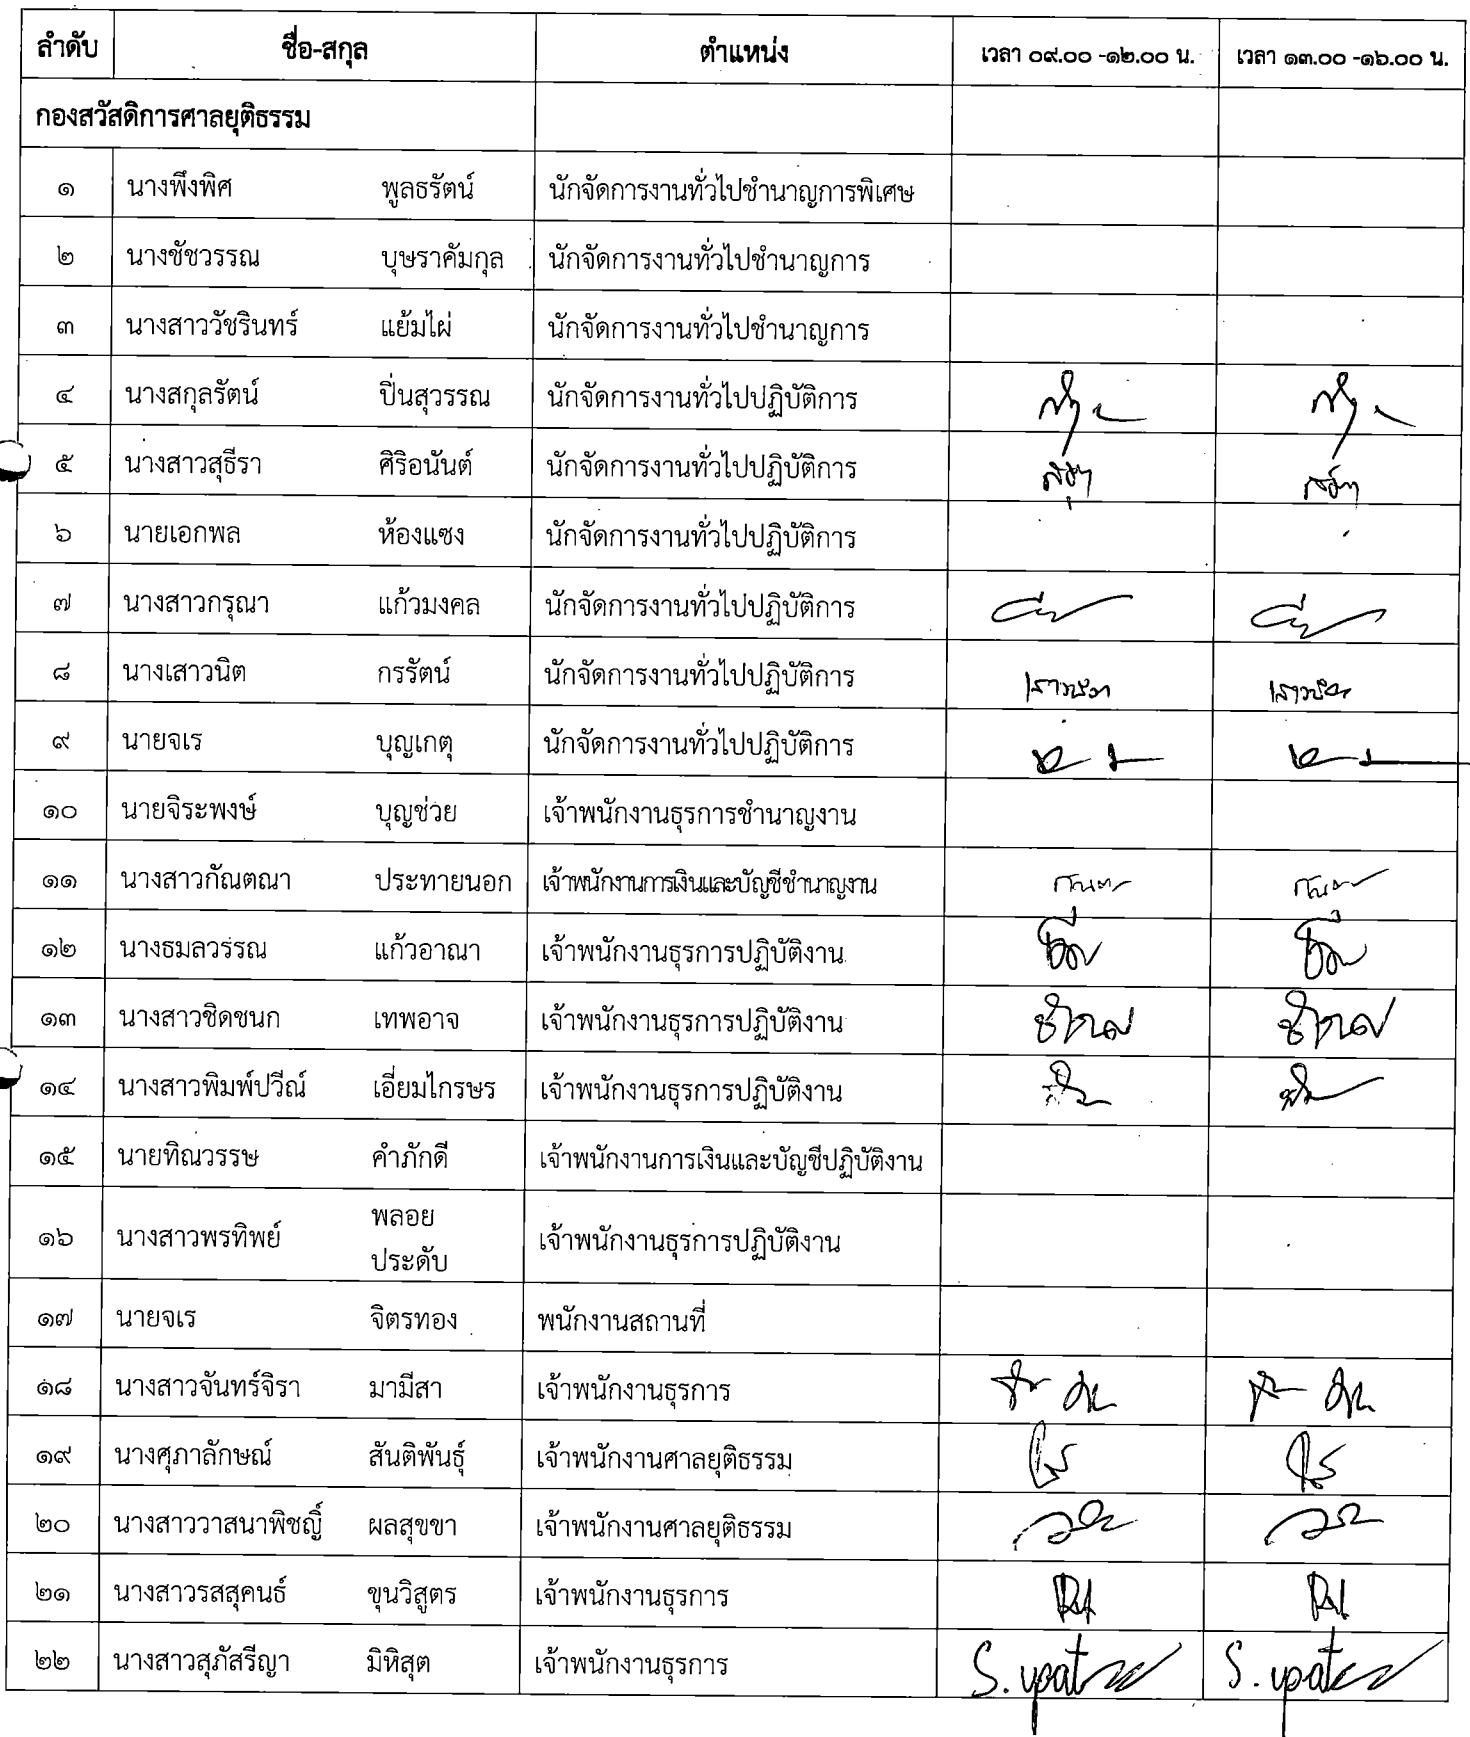 ลำดับ ชื่อ-สกุล ตำแหน่ง เวลา ๐๙.๐๐ -๑๒.๐๐ น. เวลา ๑๓.๐๐ -๑๖.๐๐ น.
กองสวัสดิการศาลยุติธรรม
๑ นางพึงพิศ พูลธรัตน์ นักจัดการงานทั่วไปชำนาญการพิเศษ
๒ นางชัชวรรณ บุษราคัมกุล นักจัดการงานทั่วไปชำนาญการ
๓ นางสาววัชรินทร์ แย้มไผ่ นักจัดการงานทั่วไปชำนาญการ
๔ นางสกุลรัตน์ ปิ่นสุวรรณ นักจัดการงานทั่วไปปฏิบัติการ
๕ นางสาวสุธีรา ศิริอนันต์ นักจัดการงานทั่วไปปฏิบัติการ
๖ นายเอกพล ห้องแซง นักจัดการงานทั่วไปปฏิบัติการ
๗ นางสาวกรุณา แก้วมงคล นักจัดการงานทั่วไปปฏิบัติการ
๘ นางเสาวนิต กรรัตน์ นักจัดการงานทั่วไปปฏิบัติการ
๙ นายจเร บุญเกตุ นักจัดการงานทั่วไปปฏิบัติการ
๑๐ นายจิระพงษ์ บุญช่วย เจ้าพนักงานธุรการชำนาญงาน
๑๑ นางสาวกัณตณา ประทายนอก เจ้าพนักงานการเงินและบัญชีชำนาญงาน
๑๒ นางธมลวรรณ แก้วอาณา เจ้าพนักงานธุรการปฏิบัติงาน
๑๓ นางสาวชิดชนก เทพอาจ เจ้าพนักงานธุรการปฏิบัติงาน
๑๔ นางสาวพิมพ์ปวีณ์ เอี่ยมไกรษร เจ้าพนักงานธุรการปฏิบัติงาน
๑๕ นายทิณวรรษ คำภักดี เจ้าพนักงานการเงินและบัญชีปฏิบัติงาน
๑๖ นางสาวพรทิพย์ พลอย เจ้าพนักงานธุรการปฏิบัติงาน
ประดับ
๑๗ นายจเร จิตรทอง พนักงานสถานที่
๑๘ นางสาวจันทร์จิรา มามีสา เจ้าพนักงานธุรการ
๑๙ นางศุภาลักษณ์ สันติพันธุ์ เจ้าพนักงานศาลยุติธรรม
๒๐ นางสาววาสนาพิชญิ์ ผลสุขขา เจ้าพนักงานศาลยุติธรรม
๒๑ นางสาวรสสุคนธ์ ขุนวิสูตร เจ้าพนักงานธุรการ
๒๒ นางสาวสุภัสรีญา มิหิสุต เจ้าพนักงานธุรการ